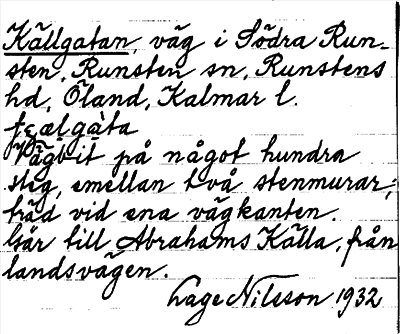 Källgatan, väg i Södra Run-
sten, Runsten sn, Runstens
hd, Öland, Kalmar l.
Vägbit på något hundra
steg, emellan två stenmurar;
träd vid ena vägkanten.
Går till Abrahams Källa, från
landsvägen.
Lage Nilsson 1932